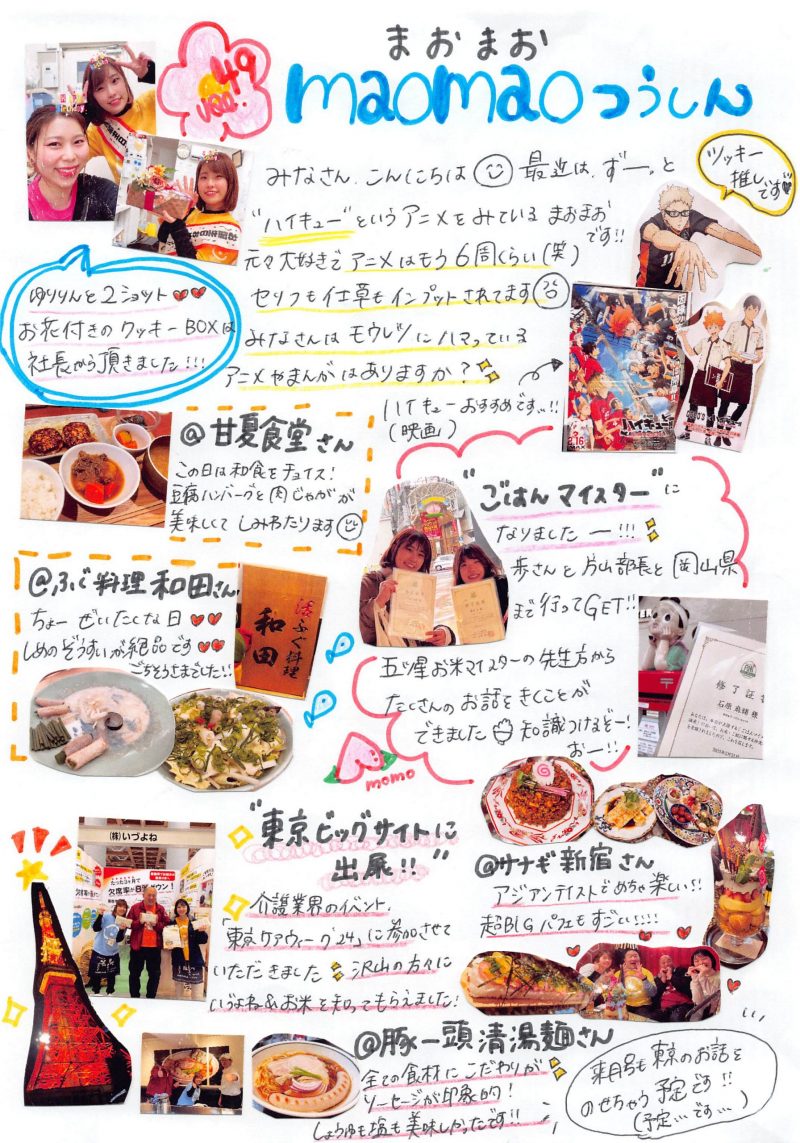 まおまお
maomaoつうしん
vol.49
みなさん、こんにちは 最近は、ずーっと
"ハイキュー"というアニメをみている まおまお
です!!
元々大好きで アニメはもう6周くらい(笑)
セリフも仕草もインプットされてます
みなさんは モウレツに ハマっている
アニメやまんがは ありますか?
ハイキューおすすめです!!
(映画)
ツッキー
推し
です
ゆりりんと2ショット
お花付きのクッキーBOXは
社長から頂きました!!!
ハイキュー!!
2.16
@甘夏食堂さん
この日は和食をチョイス!
豆腐ハンバーグと肉じゃがが
美味しくて しみわたります
"ごはんマイスター"に
なりましたー!!!
歩さんと片山部長と岡山県
まで行ってGET!!
五ツ星お米マイスターの先生方から
たくさんのお話をきくことが
できました 知識つけるぞー!
おー!!
修了証書
momo
@ふぐ料理 和田さん
ちょー ぜいたくな日
しめのぞうすいが絶品です
ごちそうさまでした!!
活ふぐ料理
和田
"東京ビッグサイトに
出展!!"
介護業界のイベント、
「東京ケアウィーク'24」に参加させて
いただきました 沢山の方々に
いづよね&お米を知ってもらえました!
(株)いづよね
@サナギ新宿さん
アジアンテイストでめちゃ楽しい!!
超BIGパフェもすごい!!!!
@豚一頭清湯麺さん
全ての食材にこだわりが
ソーセージが印象的!
しょうゆも塩も美味しかったです!!
来月号も東京のお話を
のせちゃう予定です!!
(予定…です…)